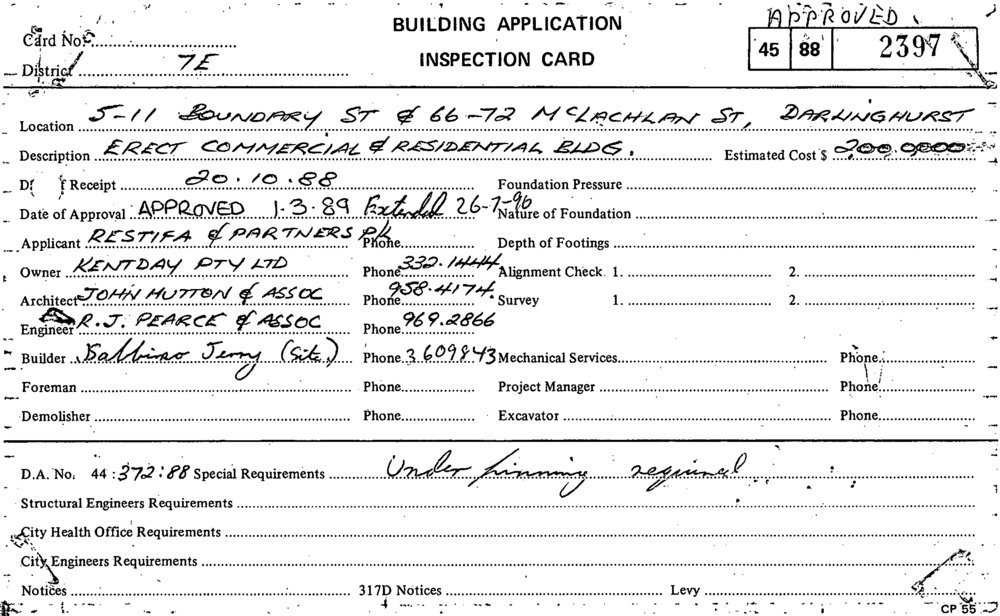 APPROVED
BUILDING APPLICATION
INSPECTION CARD
45 88 2397
Card No.
District 7E
Location 5-11 BOUNDARY ST & 66-72 McLACHLAN ST, DARLINGHURST
Description ERECT COMMERCIAL & RESIDENTIAL BLDG. Estimated Cost $ 200,0000
Receipt 20.10.88 Foundation Pressure
Date of Approval APPROVED 1.3.89 Extended 26-7-90 Nature of Foundation
Applicant RESTIFA & PARTNERS P/L Phone Depth of Footings
Owner KENTDAY PTY LTD Phone 332.1444 Alignment Check 1. 2.
Architect JOHN HUTTON & ASSOC Phone 958.4174 Survey 1. 2.
Engineer R.J. PEARCE & ASSOC Phone 969.2866
Builder Jerry (Site) Phone 3609843 Mechanical Services Phone
Foreman Phone Project Manager Phone
Demolisher Phone Excavator Phone
D.A. No. 44:372:88 Special Requirements Under pinning required
Structural Engineers Requirements
City Health Office Requirements
City Engineers Requirements
Notices 317D Notices Levy
CP 55